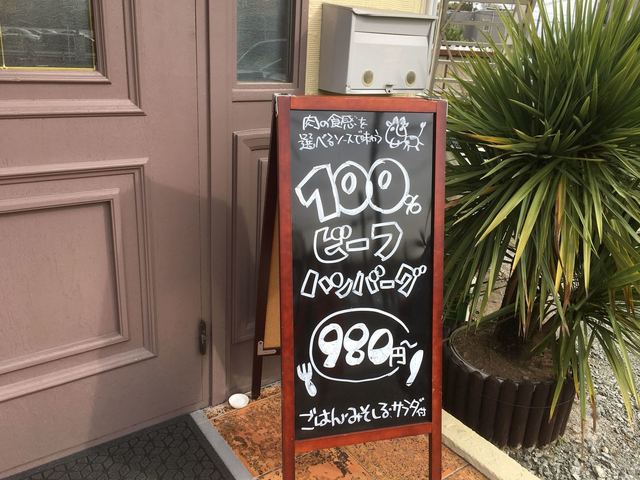 肉の食感を
選べるソースで味わう
100%
ビーフ
ハンバーグ
980円〜
ごはん・みそしる・サラダ付